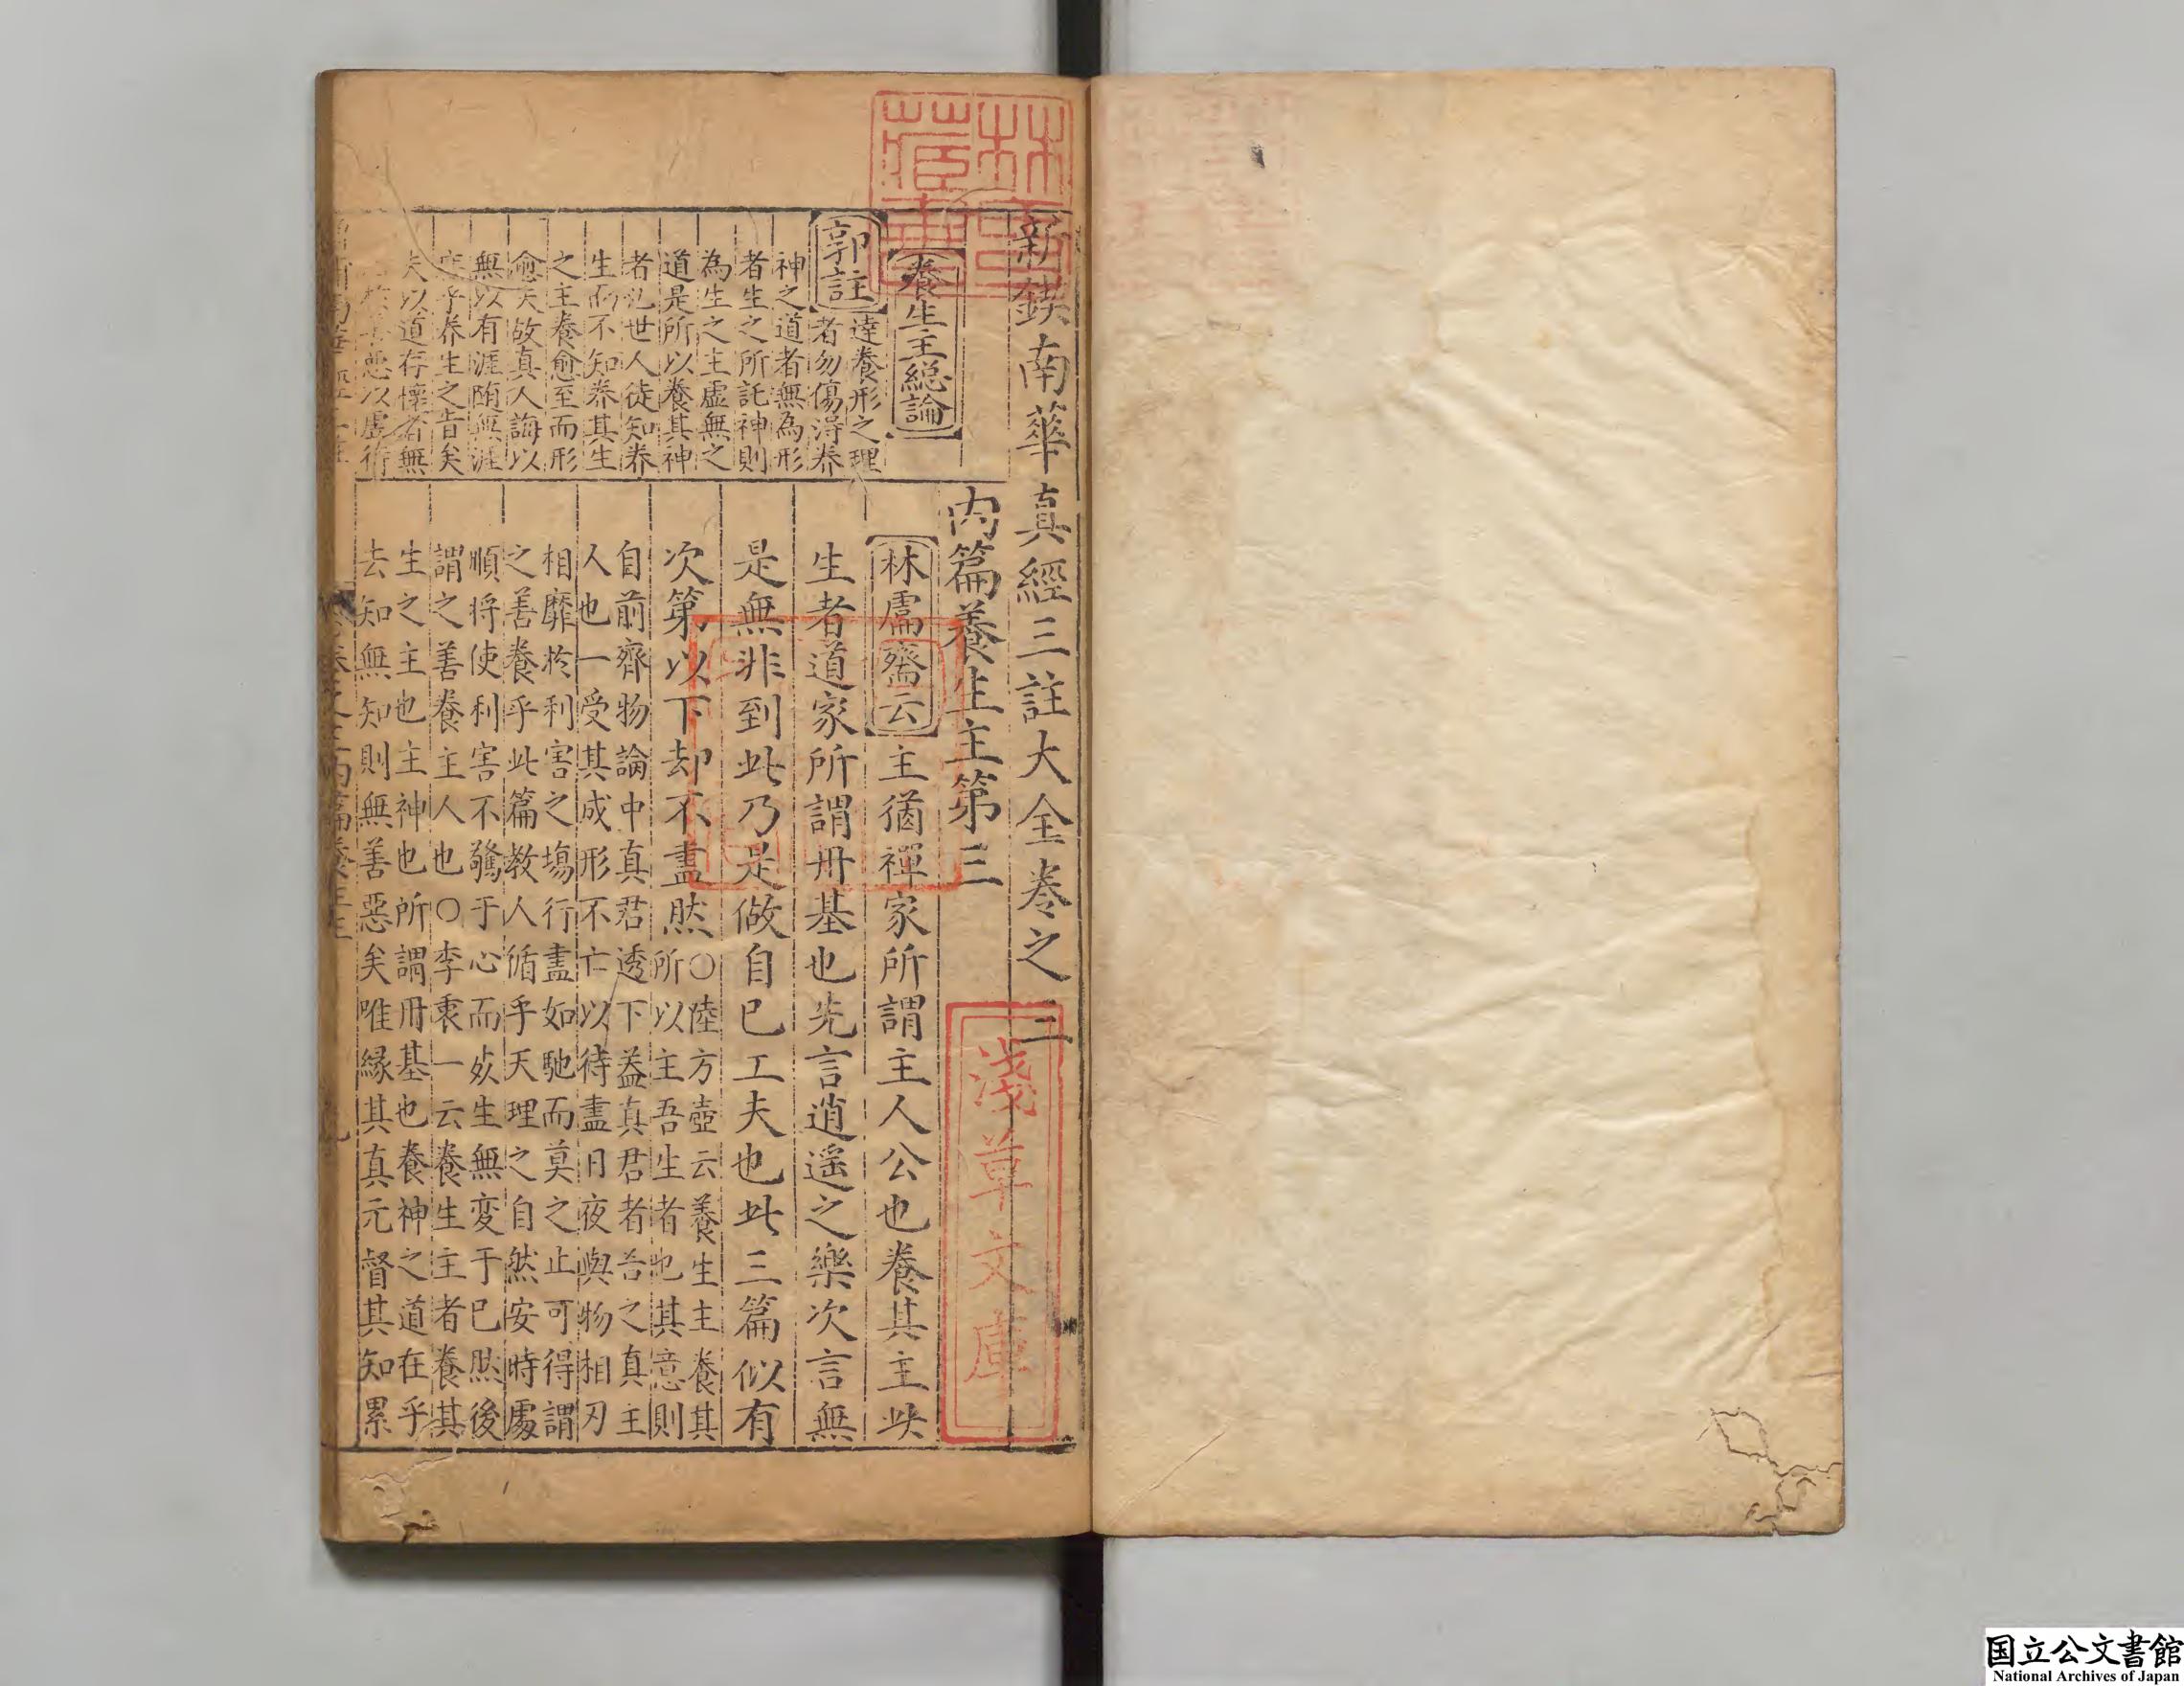 新鋟南華真經三註大全卷之二
內篇養生主第三
養生主總論
郭註
達養形之理
者勿傷得养
神之道者無為形
者生之所託神則
為生之主虛無之
道是所以養其神
者也世人徒知养
生而不知养其生
之主養愈至而形
愈失故真人誨以
無以有涯随無涯
庶乎养生之旨矣
夫以道存懷者無
善無惡以虛待
林鬳齋云
主猶禪家所謂主人公也養其主此
生者道家所謂丹基也先言逍遥之樂次言無
是無非到此乃是做自已工夫也此三篇似有
次第以下却不盡然
○陸方壺云養生主養其
所以主吾生者也其意則
自前齊物論中真君透下益真君者吾之真主
人也一受其成形不亡以待盡日夜與物相刃
相靡於利害之塲行盡如馳而莫之止可得謂
之善養乎此篇教人循乎天理之自然安時處
順将使利害不驚于心而死生無变于已然後
謂之善養主人也○李衷一云養生主者養其
生之主也主神也所謂丹基也養神之道在乎
去知無知則無善惡矣唯縁其真元督其知累
林氏藏書
淺草文庫
国立公文書館
National Archives of Japan